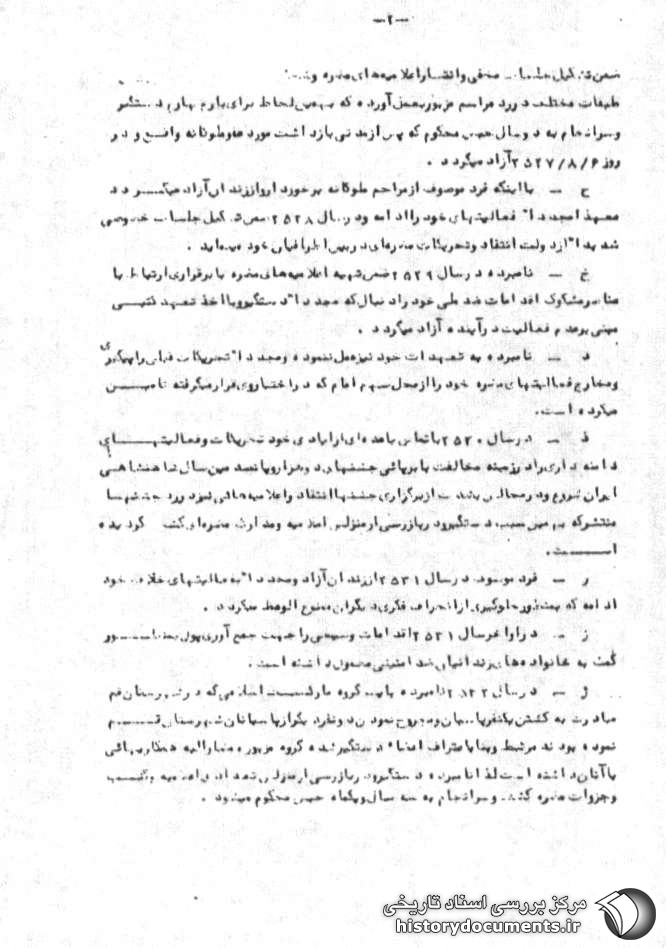 -۲-
ضمن تشکیل جلسات مخفی و انتشار اعلامیه‌های مضره و
طبقات مختلف در مراسم مزبور بعمل آورده که بهمین لحاظ برای بار چهارم دستگیر
و سرانجام به دو سال حبس محکوم که پس از مدتی بازداشت مورد عفو ملوکانه واقع و در
روز ۲۵۲۷/۸/۶ آزاد میگردد .
ح - با اینکه فرد موصوف از مراحم ملوکانه برخوردار و از زندان آزاد میگردد
معهذا مجددا" فعالیتهای خود را ادامه و در سال ۲۵۲۸ ضمن تشکیل جلسات خصوصی
شدیدا" از دولت انتقاد و تحریکات مضره‌ای در بین اطرافیان خود مینماید .
خ - نامبرده در سال ۲۵۲۹ ضمن تهیه اعلامیه‌های مضره با برقراری ارتباط با
عناصر مشکوک اقدامات ضد ملی خود را دنبال که مجددا" دستگیر و با اخذ تعهد کتبی
مبنی بر عدم فعالیت در آینده آزاد میگردد .
د - نامبرده به تعهدات خود نیز عمل ننموده و مجددا" تحریکات قبلی را پیگیری
و مخارج فعالیتهای مضره خود را از محل سهم امام که در اختیار وی قرار میگرفته تامین
میکرده است.
ذ - در سال ۲۵۳۰ با تماس با عده‌ای از ایادی خود تحریکات و فعالیتهای
دامنه داری را در زمینه مخالفت با برپائی جشنهای دو هزار و پانصدمین سال شاهنشاهی
ایران شروع و در مجالس بشدت از برگزاری جشنها انتقاد و اعلامیه‌هائی نیز در مورد جشنها
منتشر که بهمین سبب دستگیر و در بازرسی از منزلش اعلامیه و مدارک مضره‌ای کشف گردیده
است.
ر - فرد موصوف در سال ۲۵۳۱ از زندان آزاد و مجددا" به فعالیتهای خلاف خود
ادامه که بمنظور جلوگیری از انحراف فکری دیگران ممنوع الوعظ میگردد .
ز - در اواخر سال ۲۵۳۱ اقدامات وسیعی را جهت جمع آوری پول بمنظور
کمک به خانواده‌های زندانیان ضد امنیتی معمول داشته است .
ژ - در سال ۲۵۳۲ نامبرده با یک گروه مارکسیست اسلامی که در شهرستان قم
مبادرت به کشتن یکنفر پاسبان و مجروح نمودن دو نفر دیگر از پاسبانان شهرستان قم
نموده بودند مرتبط و بنا باعتراف اعضاء دستگیر شده گروه مزبور مشارالیه همکاریهائی
با آنان داشته است لذا نامبرده دستگیر و در بازرسی از منزلش تعدادی اعلامیه و کتب
و جزوات مضره کشف و سرانجام به سه سال و یکماه حبس محکوم میشود .
مرکز بررسی اسناد تاریخی
historydocuments.ir